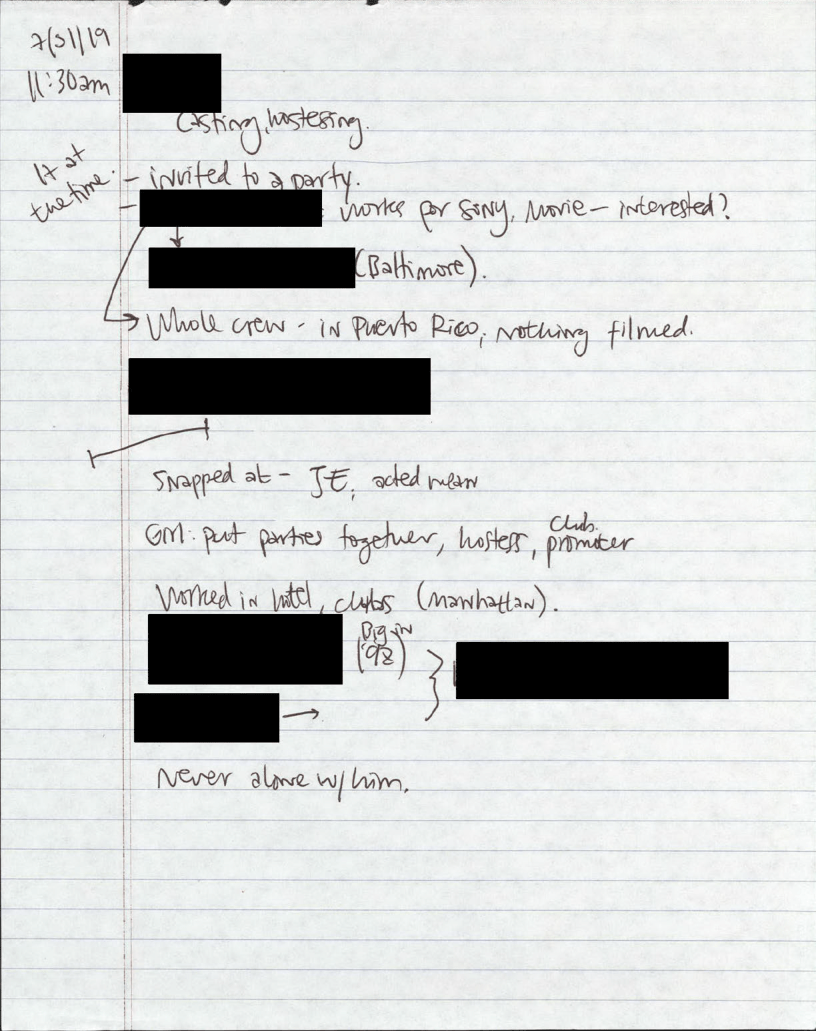 7/31/19
11:30am
Casting, hostessing.
17 at
the time.
- invited to a party.
- works for Sony, movie - interested?
(Baltimore).
Whole crew - in Puerto Rico, nothing filmed.
Snapped at - JE, acted mean
GM: put parties together, hostess, club promoter
Worked in hotel, clubs (Manhattan).
Big in
Never alone w/ him.